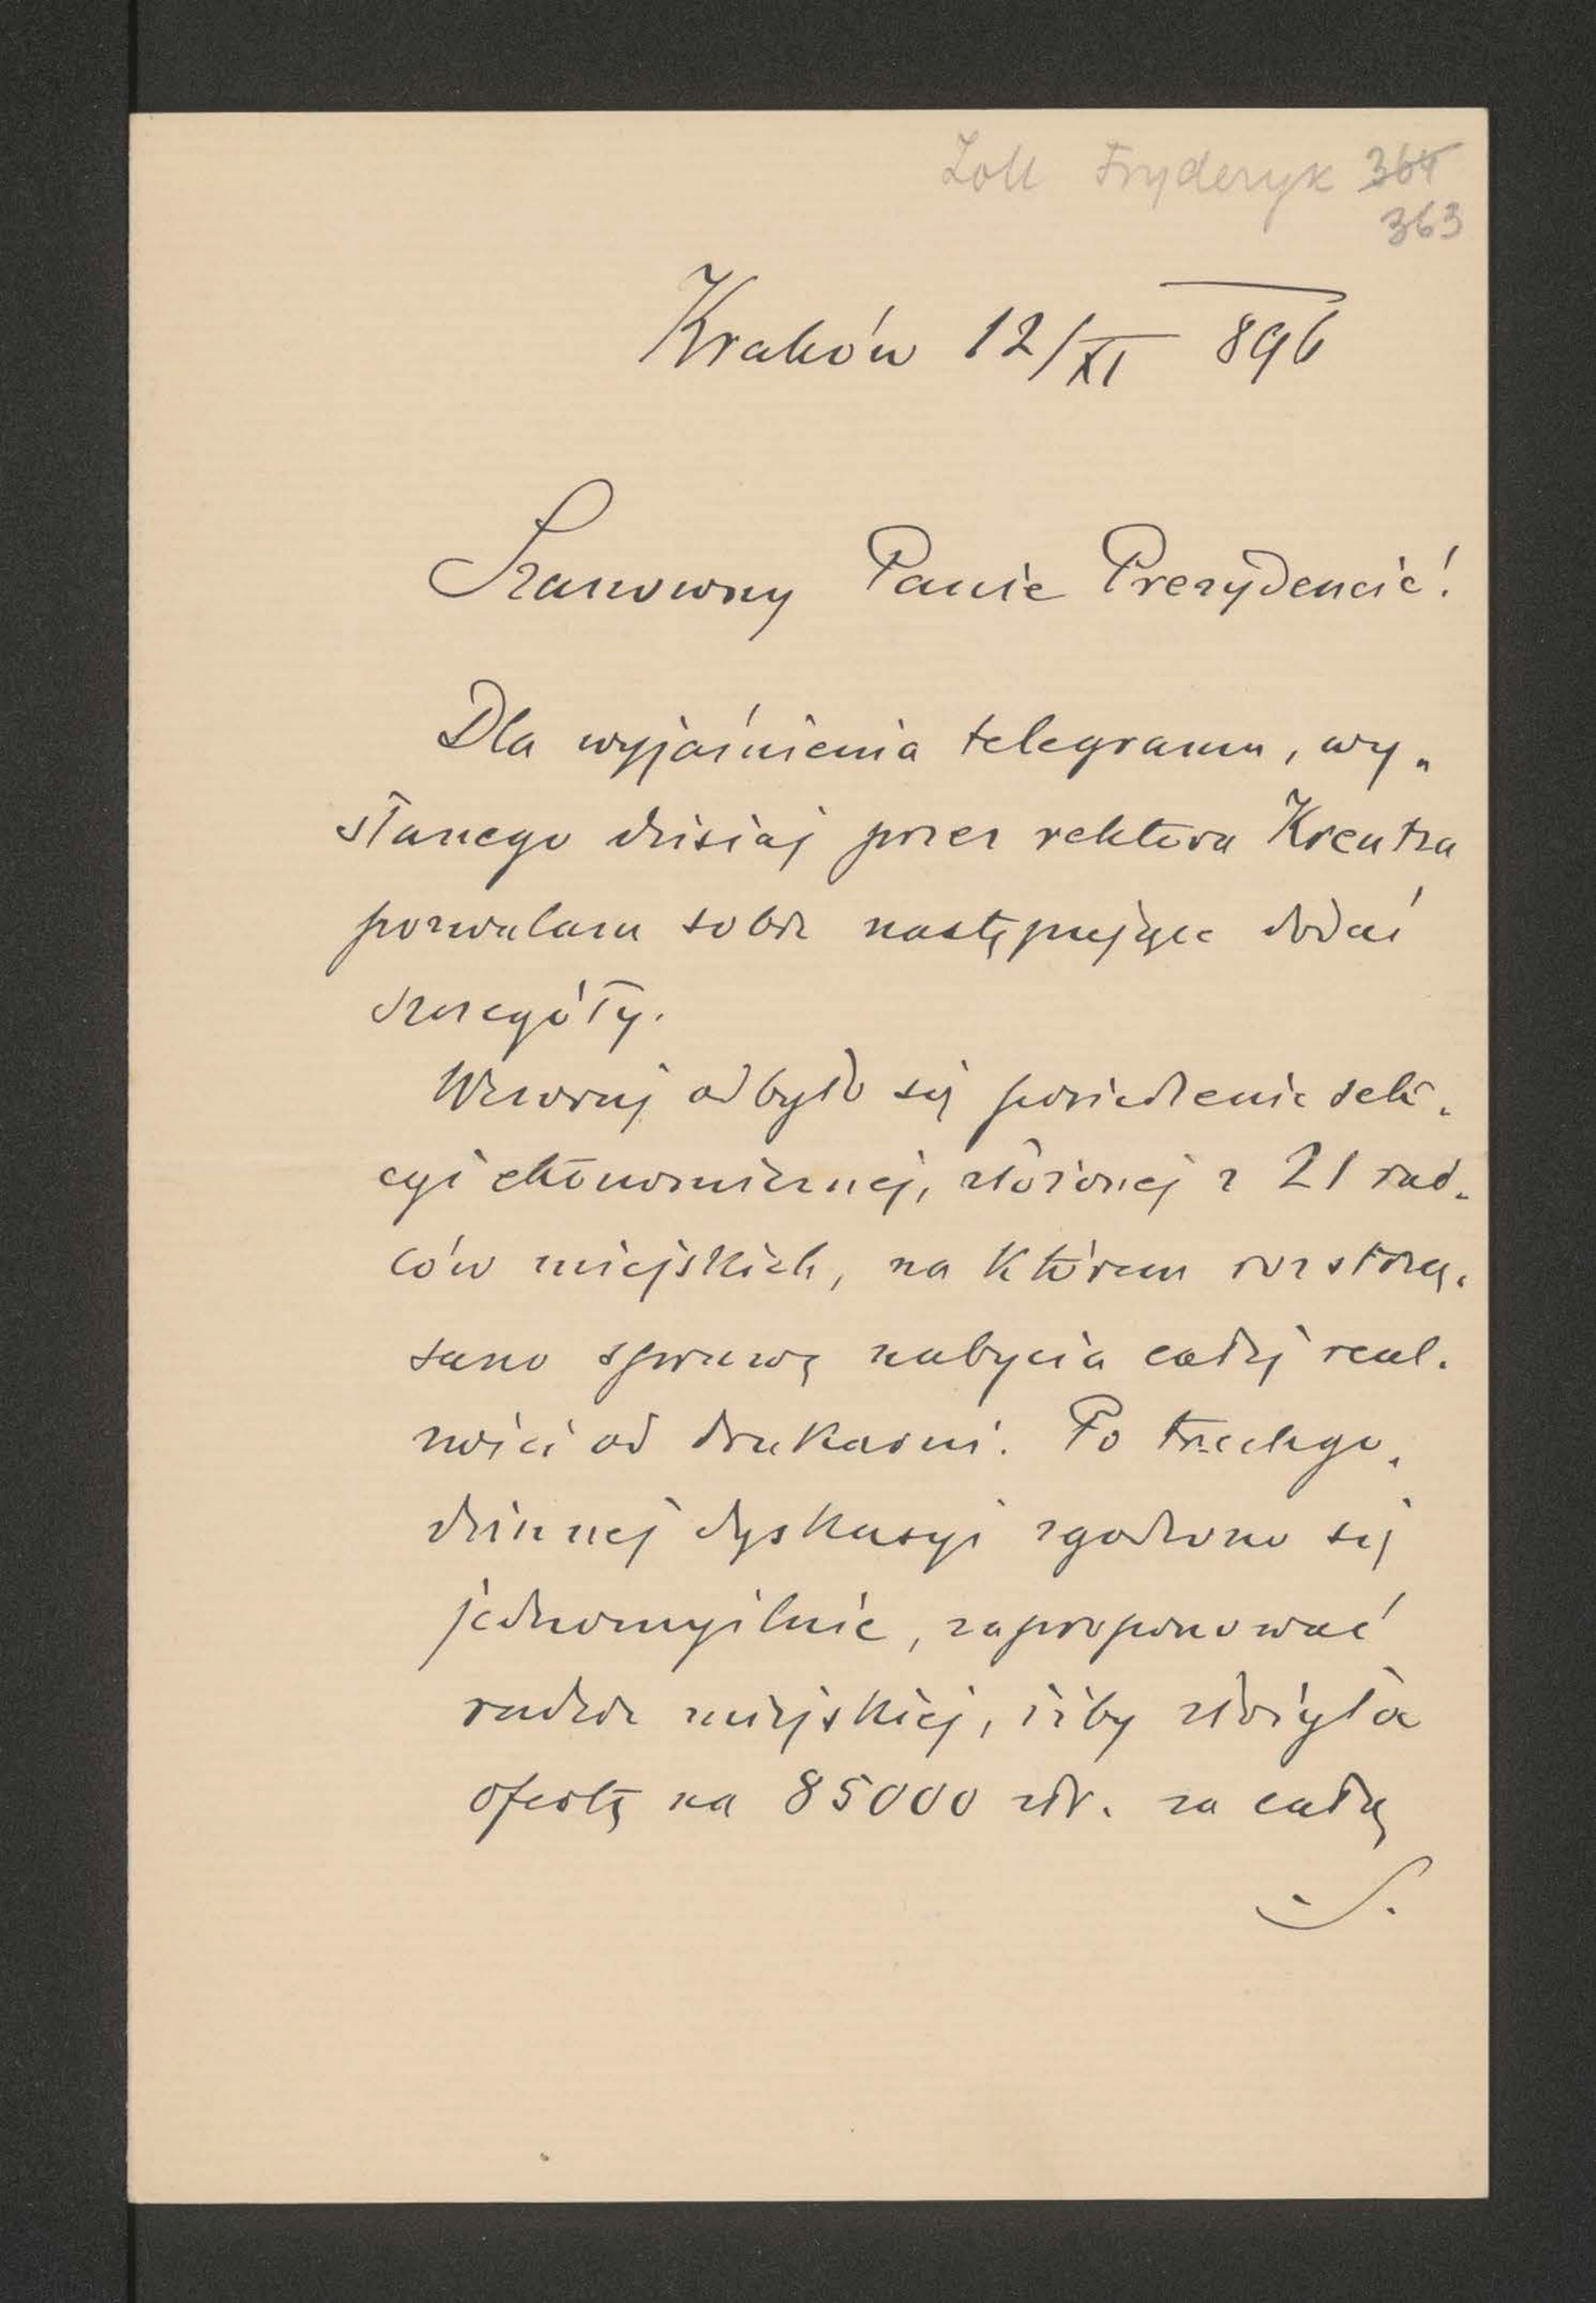 Zoll Fryderyk 364
363
Kraków 12/XI 896
Szanowny Panie Prezydencie!
Dla wyjaśnienia telegramu, wy„
słanego dzisiaj przez rektora Kreutza
pozwalam sobie następujące dodać
szczegóły.
Wczoraj odbyło się posiedzenie sek„
cyi ekonomicznej, złożonej z 21 rad„
ców miejskich, na którem roztrzą„
sano sprawę nabycia całej real„
ności od drukarni. Po trzechgo„
dzinnej dyskusyi zgodzono się
jednomyślnie, zaproponować
radzie miejskiej, iżby złożyła
ofertę na 85000 złr. za całą